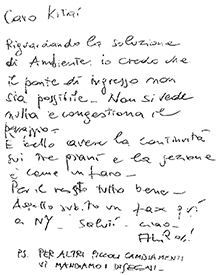 Caro Kitai
Riguardando la soluzione
di Ambiente. io credo che
il ponte di ingresso non
sia possibile - Non si vede
nulla e congestiona il
paesaggio -
È bello avere la continuità
sui tre piani e la sezione
è come un faro -
Per il resto tutto bene -
Aspetto subito un fax qui
a NY - Saluti - ciao -
PS. PER ALTRI PICCOLI CAMBIAMENTI
VI MANDIAMO I DISEGNI -